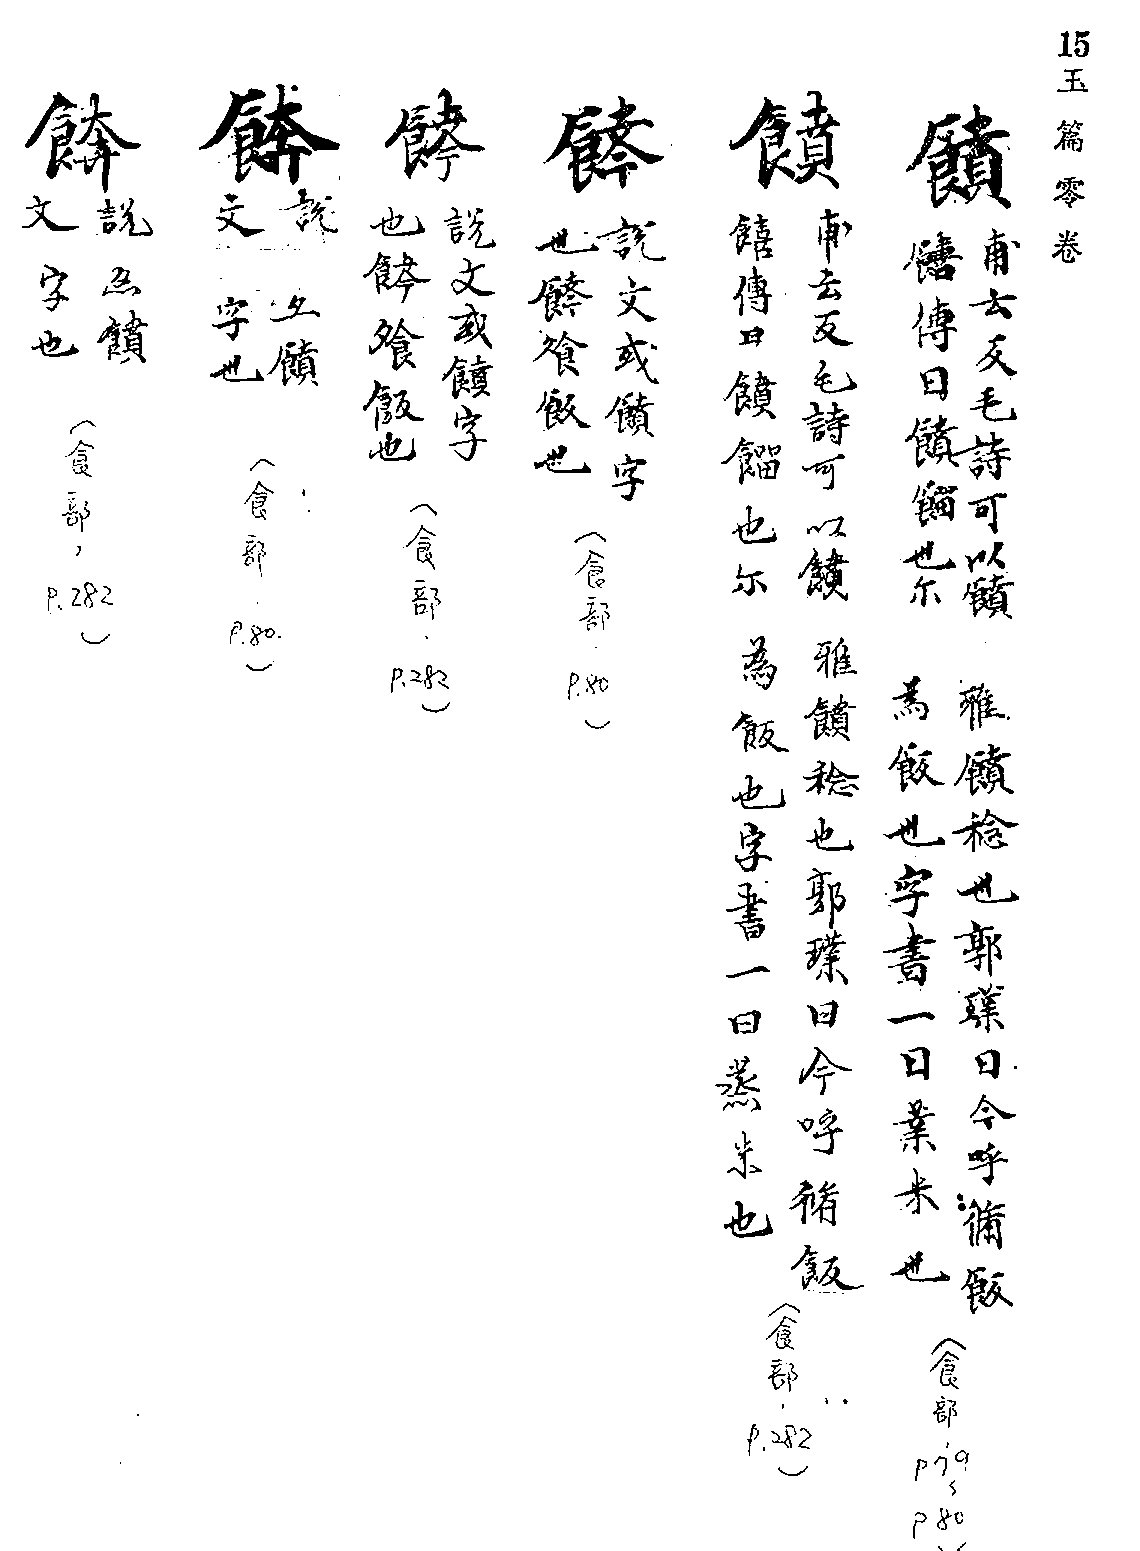 15
玉篇零卷
饙
甫云反毛詩可以饙
饎傳曰饙餾也尓
雅饙稔也郭璞曰今呼脩飯
為飯也字書一曰蒸米也
(食部, P79~P80)
饙
甫云反毛詩可以饙
饎傳曰饙餾也尓
雅饙稔也郭璞曰今呼脩飯
為飯也字書一曰蒸米也
(食部, P.282)
説文或饙字
也餴飱飯也
(食部. P.80)
説文或饙字
也餴飱飯也
(食部. P.282)
説文饙
文字也
(食部. P.80.)
餴
説亦饙
文字也
(食部, P.282)